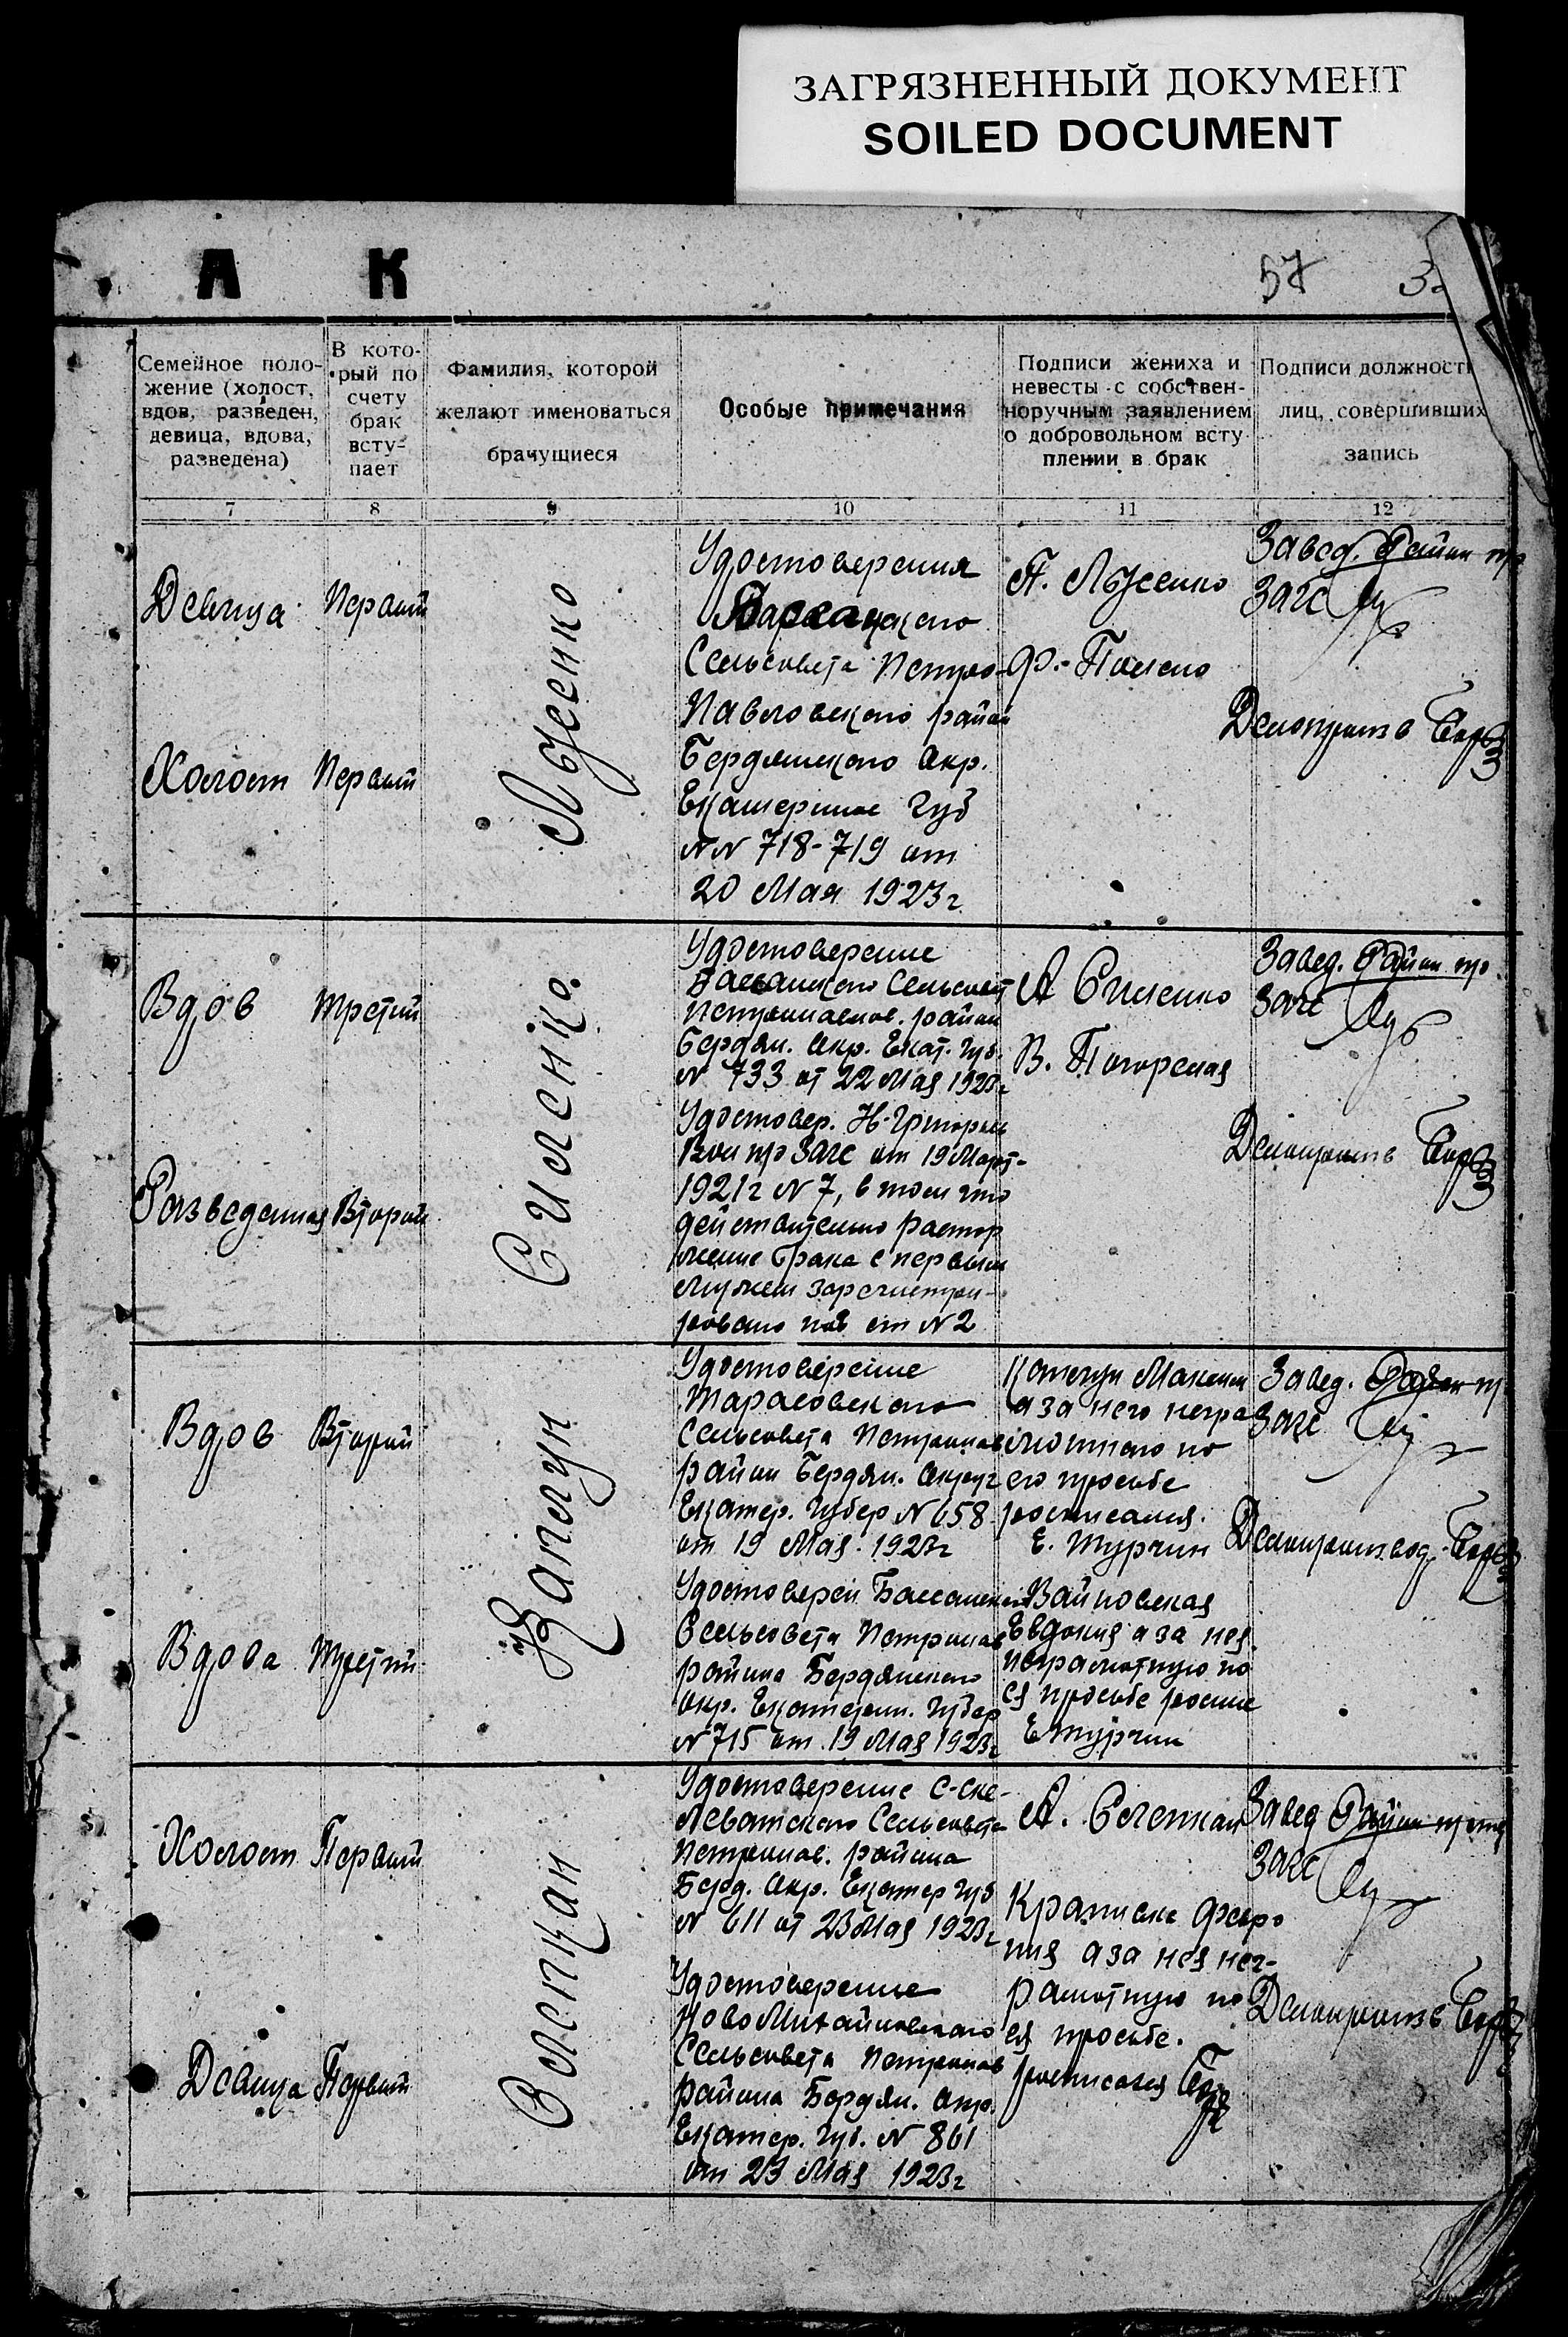 ЗАГРЯЗНЕННЫЙ ДОКУМЕНТ
SOILED DOCUMENT
А К
57
Семейное поло-
жение (холост,
вдов, разведен,
девица, вдова,
разведена)
В кото-
рый по
счету
брак
всту-
пает
Фамилия, которой
желают именоваться
брачущиеся
Особые примечания
Подписи жениха и
невесты с собствен-
норучным заявлением
о добровольном всту-
плении в брак
Подписи должностн
лиц, совершивших
запись
7 8 9 10 11 12
Девица Первый
Холост Первый
Лысенко
Удостоверения
Сельсовета Петро-
Павловского район
Бердянского Окр.
Екатеринос Губ
NN 718-719 от
20 Мая 1923 г
П. Лысенко
Завед. Район
Загс
Делопроизв
Вдов Третий
Разведенная Второй
Силенко.
Удостоверение
Басанского Сельсовет
район
Бердян. Окр. Екат. Губ.
N 733 от 22 Мая 1923 г
Удостовер.
Загс от 19 Март-
1921 г N 7, в том что
действительно растор
жение брака с первым
мужем зарегистри-
ровано от N 2
А Силенко
В. Погорелая
Завед. Район
Загс
Делопроизв
Вдов Второй
Вдова Третий
Капчун
Удостоверение
Тарасовского
Сельсовета
район Бердян. Округ
Екатер. Губер N 658
от 19 Мая 1923 г
Удостоверен Бассанского
Сельсовета
района Бердянского
Окр. Екатерин. Губер
N 715 от 19 Мая 1923 г
Максим
а за него негра
мотного по
его просьбе
росписался.
Е. Турчин
Войновская
Евдокия а за нея
неграмотную по
ея просьбе роспис
Е Турчин
Завед. Район
Загс
Делопроизвод.
Холост Первый
Девица Первый
Слепкан
Удостоверение
Сельсовета
района
Берд. Окр. Екатер Губ
N 611 от 23 Мая 1923 г
Удостоверение
Ново Михайловского
Сельсовета
района Бердян. Окр.
Екатер. Губ. N 861
от 23 Мая 1923 г
А. Слепкан
а за нея нег-
рамотную по
ея просьбе.
росписался
Завед Район
Загс
Делопроизв